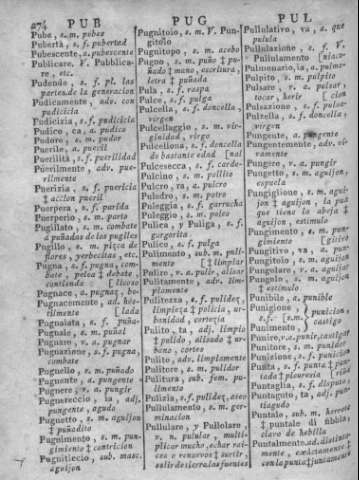 274 PUB
Pube, s. m. pubes
Pubertà, s. f. puberted
Pubescente, a. pubescente
Publicare, V. Pubblica-
re, etc.
Pudendo, s. f. pl. las
partes de la generacion
Pudicamente, adv. con
pudicicia
Pudicizia, s. f. pudicicia
Pudico, ca, a. pudico
Pudore, s. m. pudor
Puerile, a. pueril
Puerilità, s. f. puerilidad
Puerilmente, adv. pue-
rilmente
Puerizia, s. f. puericia
‡ accion pueril
Puerpera, s. f. parida
Puerperio, s. m. parto
Pugillato, s. m. combate
a puñadas de los pugiles
Pugillo, s. m. pizca de
flores, yerbecitas, etc.
Pugna, s. f. pugna, com-
bate, pelea ‡ debate,
contienda [doso
Pugnace, a. pugnaz, bo-
Pugnacemente, ad. hos-
tilmente [lada
Pugnalata, s. f. puña-
Pugnale, s. m. puñal
Pugnare, v. n. pugnar
Pugnazione, s. f. pugna,
combate
Pugnello, s. m. puñado
Pugnante, a. pungente
Pugnere, v. a. pungir
Pugnereccio, ia, adj.
pungente, agudo
Pugnetto, s. m. aguijon
‡ puñadito
Pugnimento, s. m. pun-
gimiento ‡ contricion
Pugniticcio, sub. masc.
aguijon
PUG
Pugnitoio, s. m. V. Pun-
gitoio
Pugnitopo, s. m. acebo
Pugno, s. m. puño ‡ pu-
ñado ‡ mano, escritura,
letra ‡ puñada
Pula, s. f. raspa
Pulce, s. f. pulga
Pulcella, s. f. doncella,
virgen
Pulcellaggio, s. m. vir-
ginidad, virgo
Pulcellona, s. f. doncella
de bastante edad [nal
Pulcesecca, s. f. carde-
Pulcino, s. m. pollito
Pulcro, ra, a. pulcro
Puledro, s. m. potro
Puleggia, s. f. garrucha
Puleggio, s. m. poleo
Pulica, y Puliga, s. f.
gorgorita
Pulice, s. f. pulga
Pulimento, sub. m. puli-
mento [‡ limpiar
Pulire, v. a. pulir, alisar
Pulitamente, adv. lim-
piamente
Pulitezza, s. f. pulidez,
limpieza ‡ policia, ur-
banidad, cortezia
Pulito, ta, adj. limpio
‡ pulido, aliñado ‡ ur-
bano, cortes
Pulito, adv. limpiamente
Pulitore, s. m. pulidor
Pulitura, sub. fem. pu-
limento
Pulizia, s. f. pulidez, aseo
Pullulamento, s. m. ger-
minacion
Pullulare, y Pullolare,
v. n. pulular, multi-
plicar mucho, echar rai-
ces o renuevos ‡ surtir,
salir de tierra las fuentes
PUL
Pullulativo, va, a. que
pulula
Pullulazione, s. f. V.
Pullulamento
Pulmonario, ia, a. pulmo-
Pulpito, s. m. pulpito
Pulsare, v. a. pulsar,
tocar, herir
Pulsazione, s. f. pulsa-
Pulzella, s. f. doncella,
virgen
Pungente, a. pungente
Pungentemente, adv. vi-
vamente
Pungere, v. a. pungir
Pungetto, s. m. aguijon,
espuela
Pungiglione, s. m. agui-
jon ‡ aguijon, la pua
que tiene la abeja ‡
aguijon, estimulo
Pungimento, s. m. pun-
gimiento
Pungitivo, va, a. pun-
Pungitoio, s. m. aguijon
Pungolare, v. a. aguijar
Pungolo, s. m. aguijon
‡ estimulo
Punibile, a. punible
Punigione, s. f. [v. m.
Punimento,
} punicion, castigo
Punire, v. a. punir, castigar
Punitore, s. m. punidor
Punizione, s. f. punicion
Punta, s. f. punta ‡ pun-
tada ‡ pleuresia
Puntaglia, s. f. disputa,
Puntaguto, ta, adj. pun-
tiagudo
Puntale, sub. m. herrete
‡ puntale di fibbia,
clavo de hebilla
Puntalmente, ad. distinta-
mente, exactamente ‡
con la punta ‡ juntamente